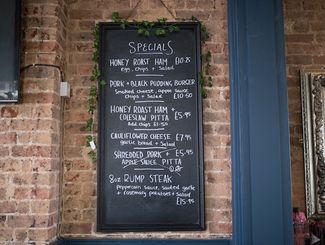 SPECIALS
HONEY ROAST HAM £10.25
egg, chips + salad
PORK + BLACK PUDDING BURGER
Smoked cheese, apple sauce
chips + salad £10.50
HONEY ROAST HAM +
COLESLAW PITTA £5.95
Add chips £1.50
CAULIFLOWER CHEESE £7.95
garlic bread + Salad
SHREDDED PORK + £5.95
APPLE SAUCE PITTA
8oz RUMP STEAK
Peppercorn sauce, sauted garlic
+ rosemary potatoes + Salad
£15.95